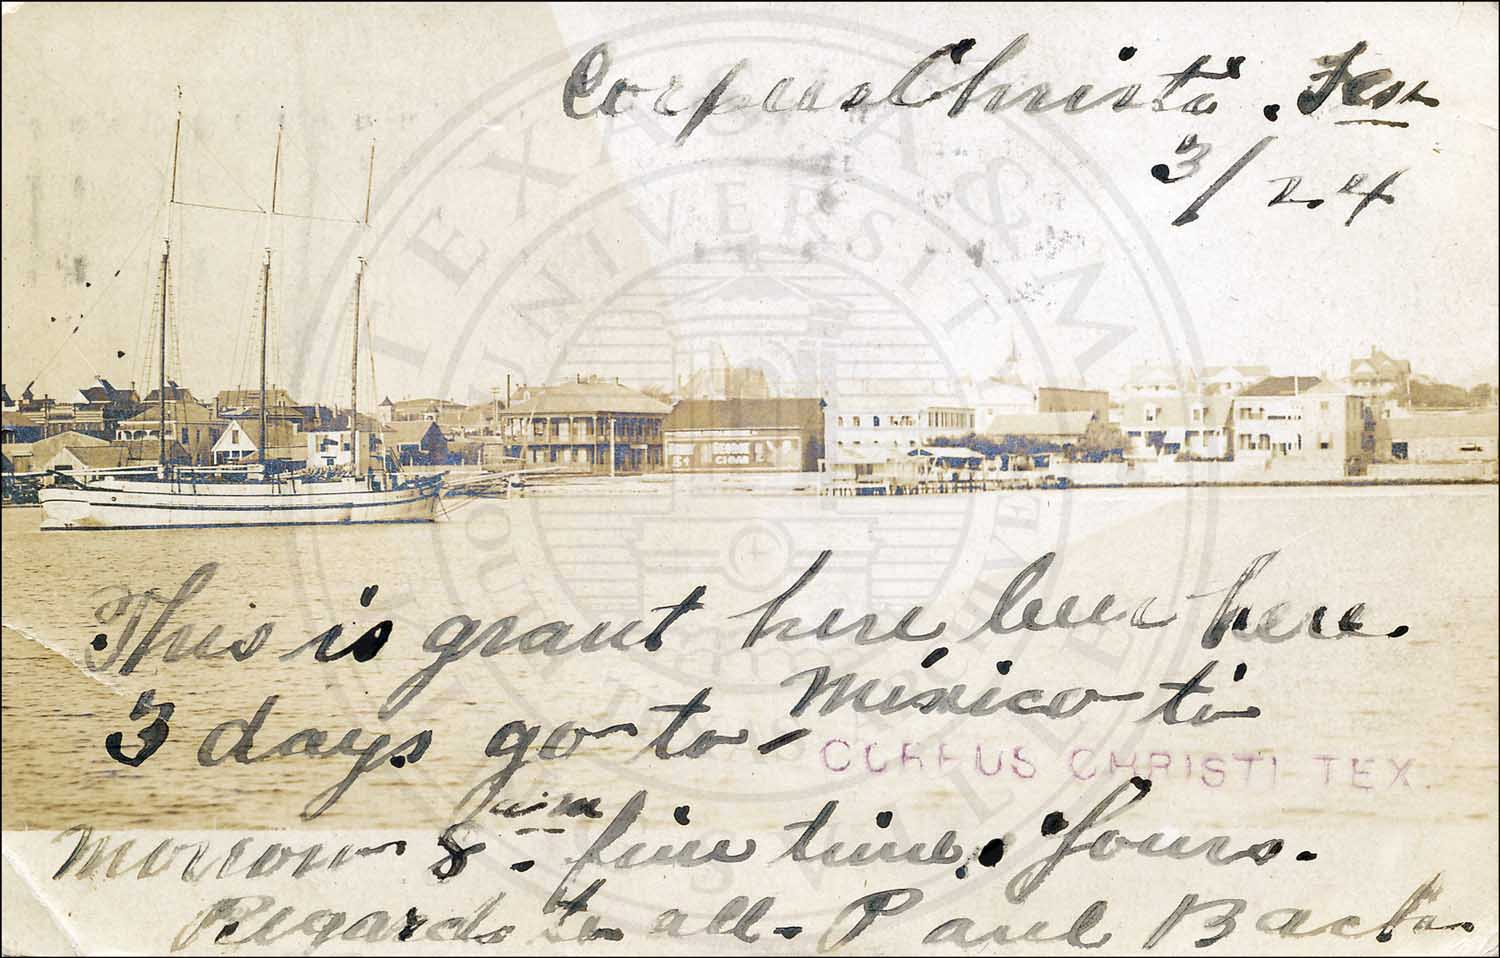 Corpus Christi. Tex
3/24
This is graut here been here.
3 days go to - Mexico to
CORPUS CHRISTI TEX.
Morrow 8 a.m. fine time. Yours.
Regards to all - Paul
5¢ CIGAR
TEXAS A & M UNIVERSITY